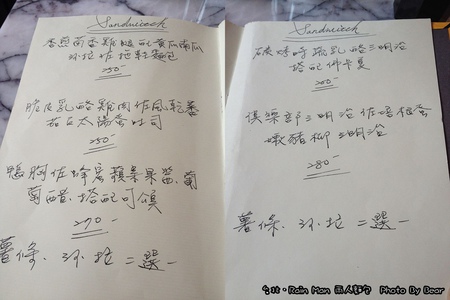 Sandwiech
香煎茴香雞腿配黃瓜南瓜
沙拉佐拖鞋麵包
250-
脆皮乳酪雞肉佐風乾蕃
茄及太陽蛋吐司
250-
鴨胸佐蜂蜜蘋果果醬、葡
萄醋、搭配可頌
270-
薯條、沙拉 二選一
Sandwiech
時蔬乳酪三明治
搭配佛卡夏
俱樂部三明治佐培根蛋
嫩豬柳三明治
280-
薯條、沙拉 二選一
台北・Rain Man Photo By Dear